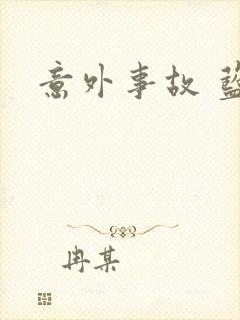 意外事故
冉某